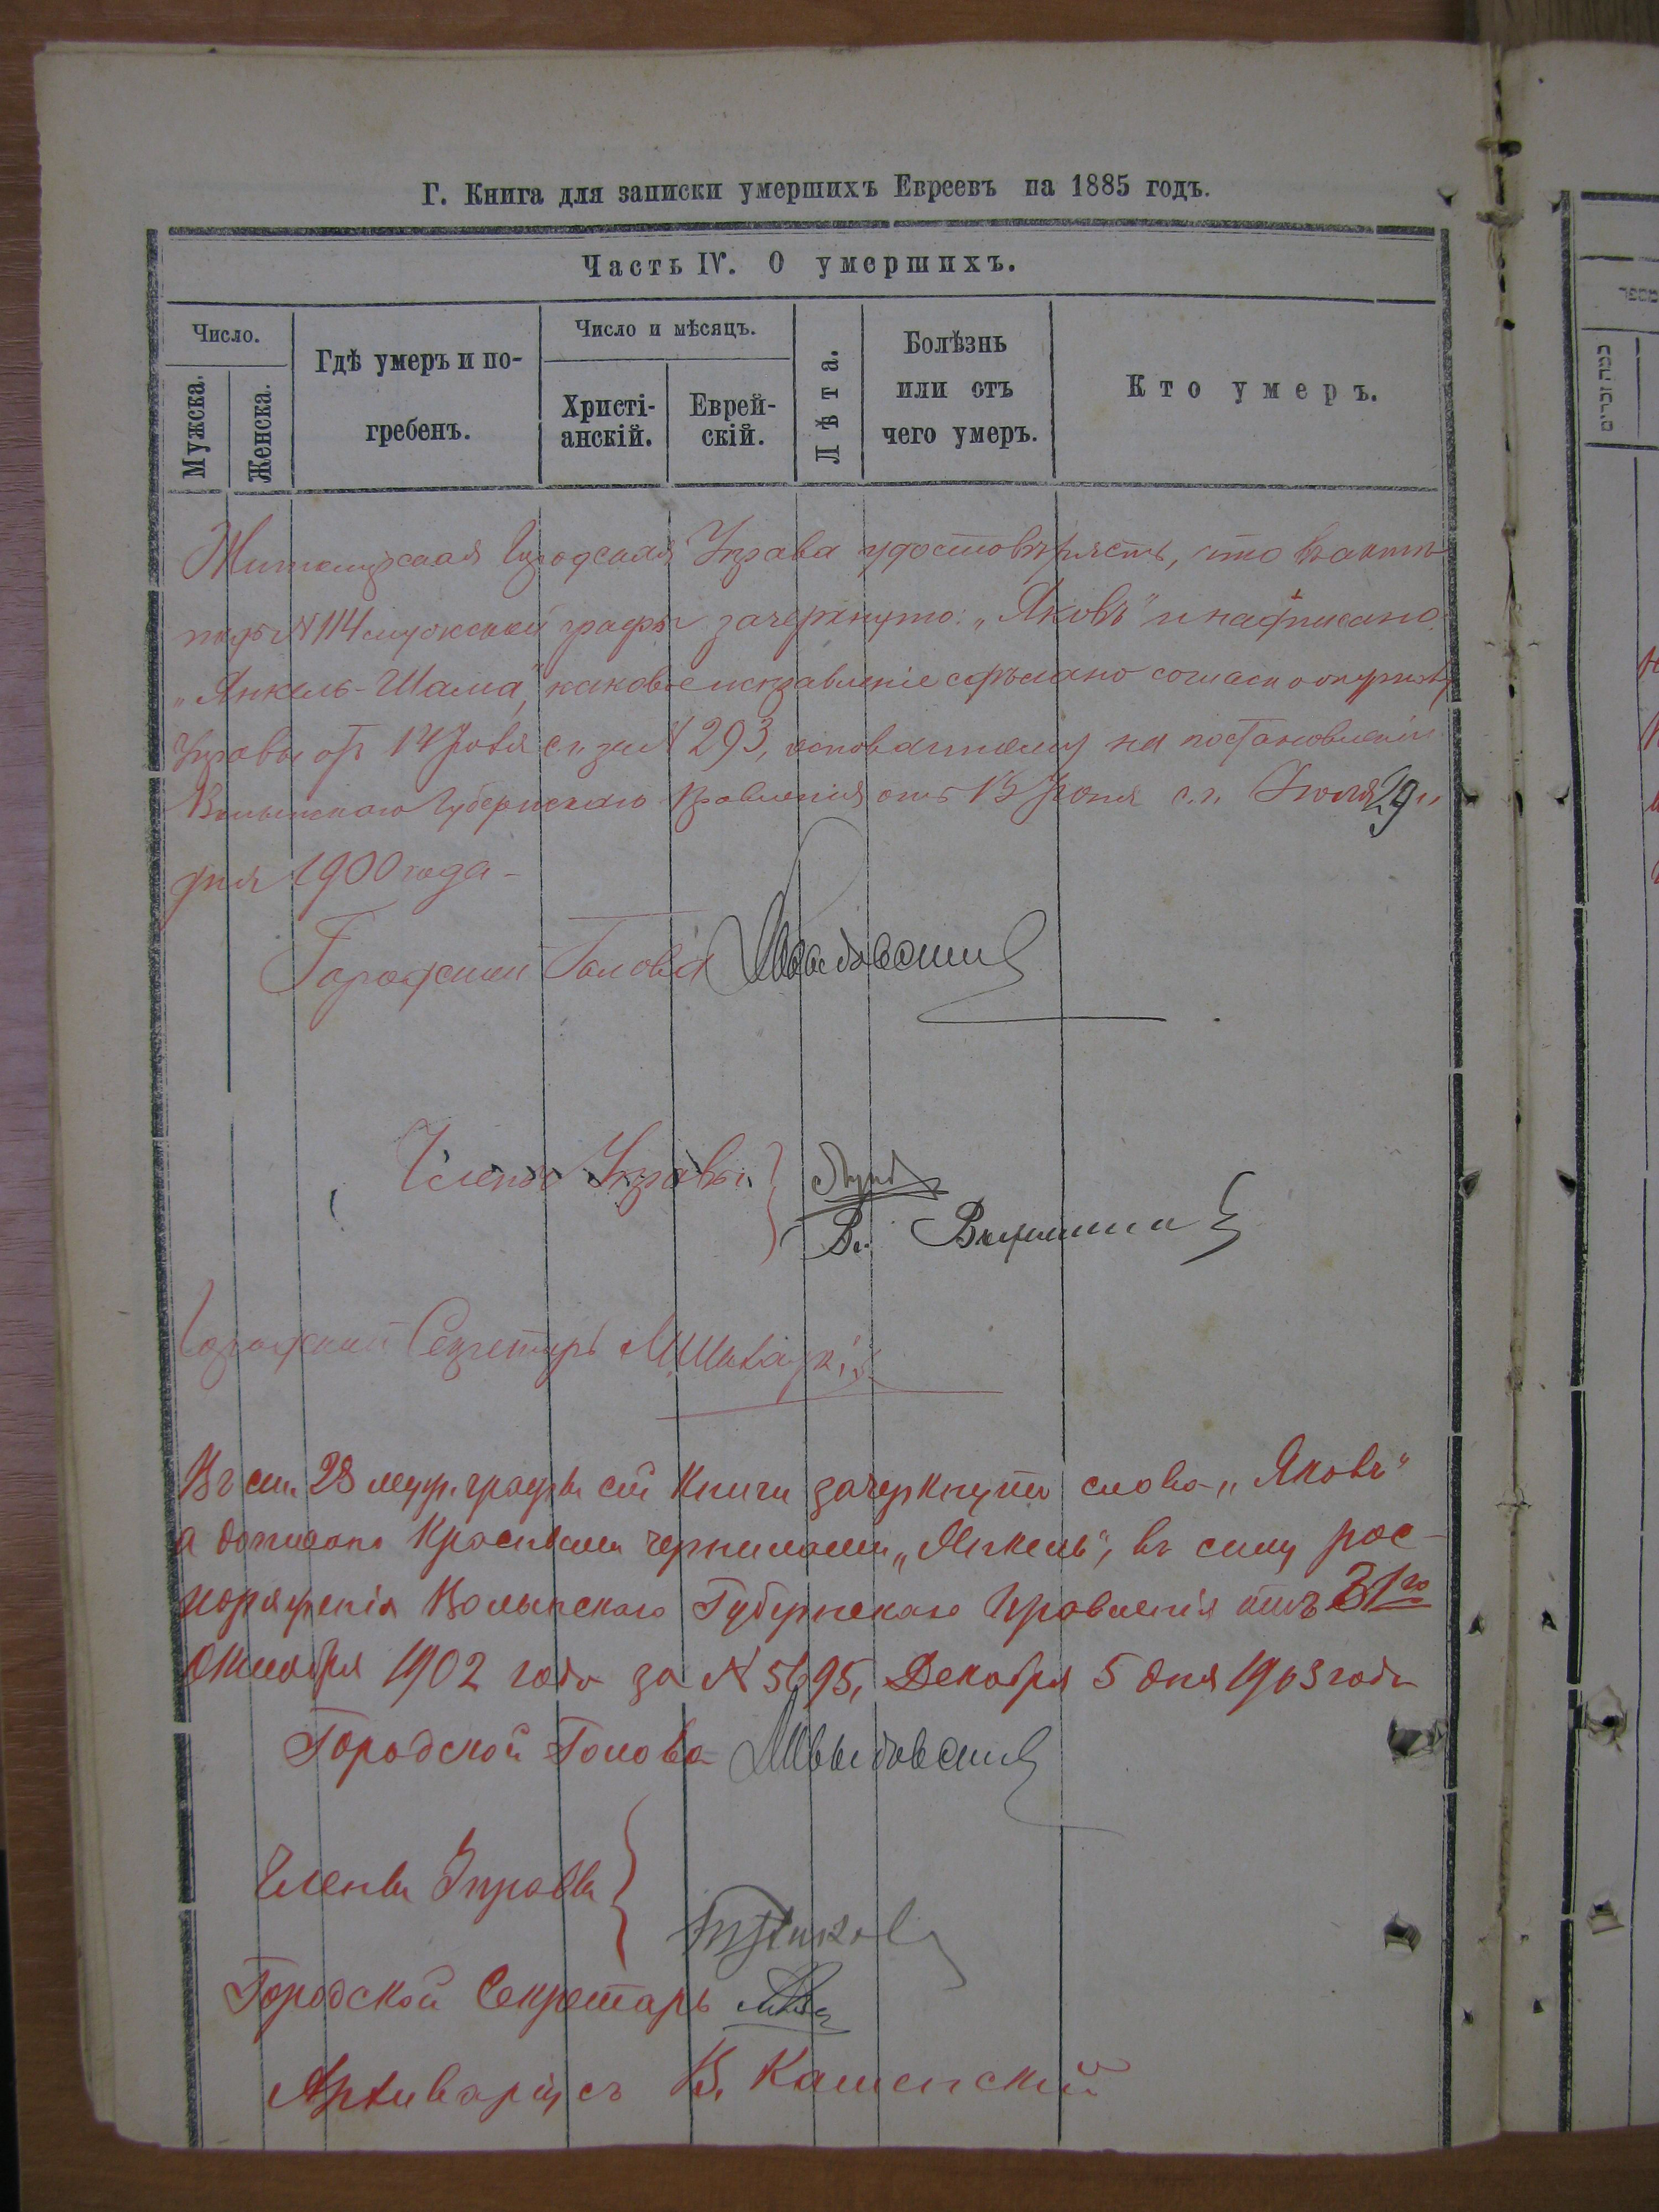 Г. Книга для записки умершихъ Евреевъ на 1885 годъ.
Часть IV. О умершихъ.
Число.
Мужска.
Женска.
Гдѣ умеръ и по-
гребенъ.
Число и мѣсяцъ.
Христі-
анскій.
Еврей-
скій.
Лѣта.
Болѣзнь
или отъ
чего умеръ.
Кто умеръ.
Житомирская Городская Управа удостовѣряетъ, что въ актѣ
подъ № 114 мужской графы зачеркнуто: „Яковъ" и надписано
„Янкель-Шама", каковое исправленіе сдѣлано согласно
Управы отъ 14 с.г. за № 293, основанному на постановленіи
Волынскаго Губернскаго Правленія отъ 13 Іюня с.г. Іюля 29
дня 1900 года
Городской Голова
Члены Управы
Вл.
Городской Секретарь
Въ ст. 28 муж. графы сей книги зачеркнуто слово „Яковъ"
а дописано красными чернилами „Янкель", въ силу рас-
поряженія Волынскаго Губернскаго Правленія отъ 31го
Октября 1902 года за № 5695, Декабря 5 дня 1903 года
Городской Голова
Члены Управы
Городской Секретарь
Архиваріусъ В. Каменскій